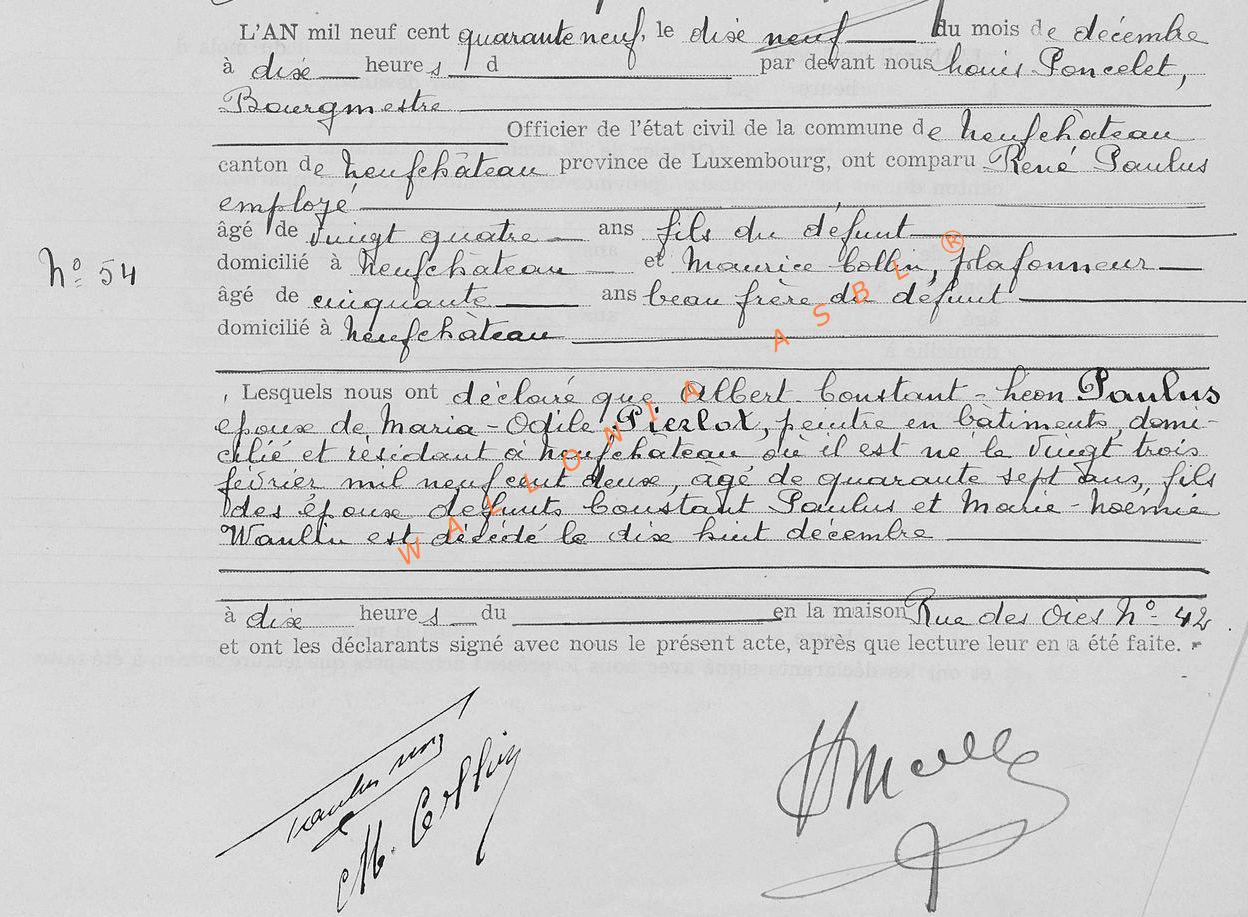 L'AN mil neuf cent quarante neuf, le dix neuf du mois de décembre
à dix heures d par devant nous Louis Poncelet,
Bourgmestre
Officier de l'état civil de la commune de Neufchâteau
canton de Neufchâteau province de Luxembourg, ont comparu René Paulus
employé
âgé de vingt quatre ans fils du défunt
domicilié à Neufchâteau et Maurice Collin, plafonneur
âgé de cinquante ans beau frère du défunt
domicilié à Neufchâteau
N° 54
Lesquels nous ont déclaré que Albert Constant - Léon Paulus
epoux de Maria - Odile Pierlot, peintre en bâtiments, domi-
cilié et résidant à Neufchâteau où il est né le vingt trois
février mil neuf cent deux, âgé de quarante sept ans, fils
des époux défunts Constant Paulus et Marie - Noëmie
Waulin est décédé le dix huit décembre
à dix heures du en la maison Rue des Oies N° 42
et ont les déclarants signé avec nous le présent acte, après que lecture leur en a été faite.
M. Collin
WALLONIA ASBL ®